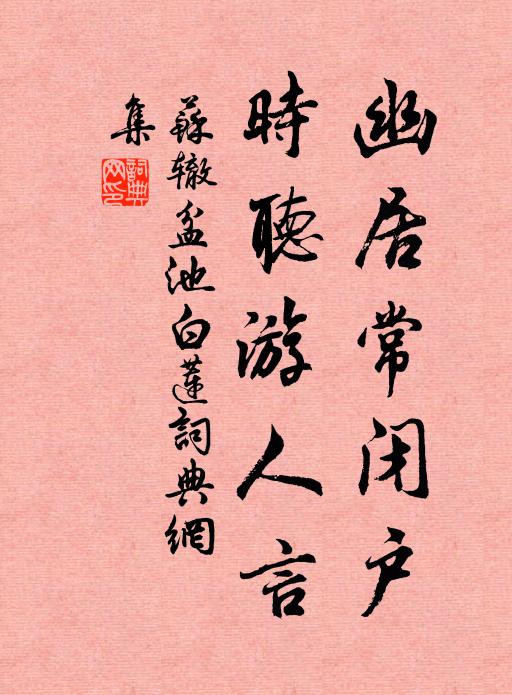 幽居常闭户
時聽游人言
蘇辙盆池白蓮詞典網
集
詞典网印